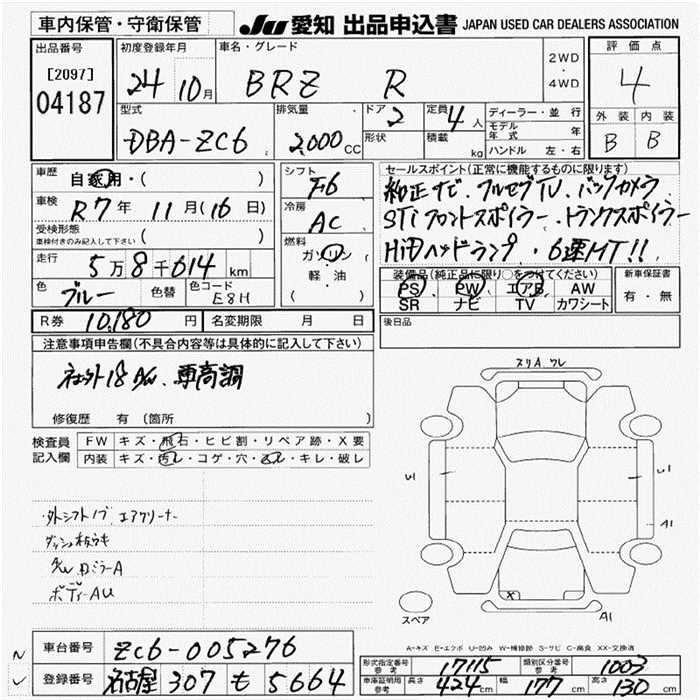 車内保管・守衛保管
JU 愛知 出品申込書 JAPAN USED CAR DEALERS ASSOCIATION
出品番号
[2097]
04187
初度登録年月
24 10月
車名・グレード
BRZ R
2WD
・
4WD
評価点
4
外装 内装
B B
型式
DBA-ZC6
排気量
2,000CC
ドア
2
形状
定員
4人
積載
kg
ディーラー・並行
モデル年式 年
ハンドル 左・右
車歴
自家用・( )
車検
R7年 11月(16日)
受検形態
車検付きのみ記入して下さい( )
走行
5万8千614km
色
ブルー
色替
色コード
E8H
シフト
F6
冷房
AC
燃料
ガソリン
軽・油
( )
セールスポイント(正常に機能するものに限ります)
純正ナビ、フルセグTV、バックカメラ
STiフロントスポイラー、トランクスポイラー
HiDヘッドランプ、6速MT!!
装備品(純正品に限り○をつけてください)
PS PW エアB AW
SR ナビ TV カワシート
新車保証書
有・無
R券 10,180円
名変期限 月 日
後日品
注意事項申告欄(不具合内容等は具体的に記入して下さい)
社外18AW、車高調
修復歴 有(箇所 )
検査員
記入欄
FW キズ・飛石・ヒビ割・リペア跡・X要
内装 キズ・汚レ・コゲ・穴・スレ・キレ・破レ
外シフトノブ エアクリーナー
ダッシュ板ウキ
ボデーAU
スリA ワレ
U1
U1
A1
X
A1
スペア
A-キズ E-エクボ U-凹み W-補修跡 S-サビ C-腐食 XX-交換済
車台番号 ZC6-005276
登録番号 名古屋 307 も 5664
形式指定番号
参考
17115
類別区分番号
参考
1003
車庫証明用
参考
長さ 424cm 幅 177cm 高さ 130cm